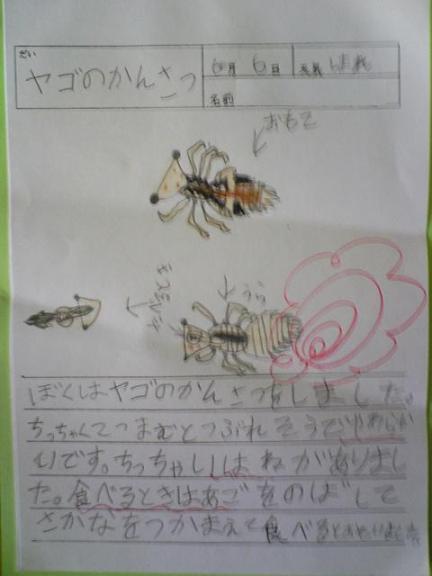 だい
ヤゴのかんさつ
6月 6日 天気 はれ
名前
おもて
たべるとき
うら
ぼくはヤゴのかんさつをしました。
ちっちゃくてつまむとつぶれそうでやわらか
いです。ちっちゃいはねがありまし
た。食べるときはあごをのばして
さかなをつかまえて食べる